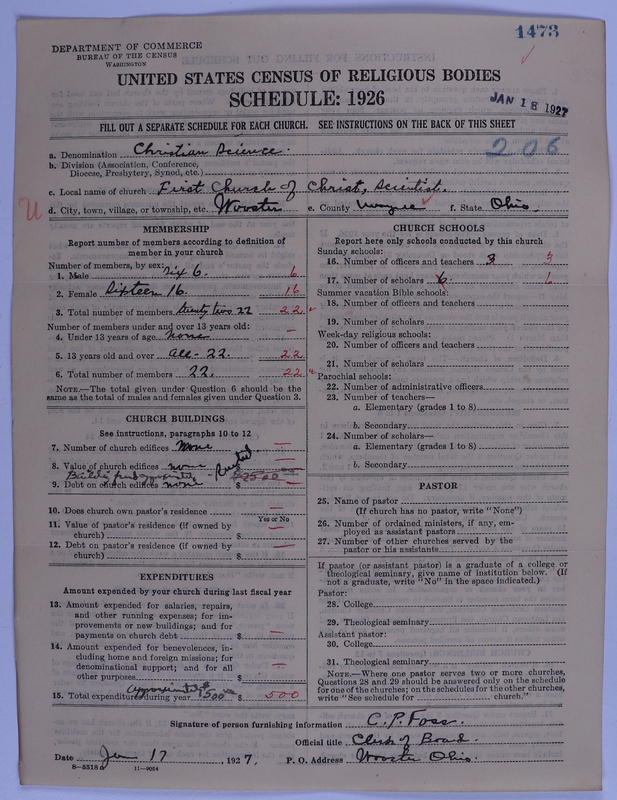 1473
DEPARTMENT OF COMMERCE
BUREAU OF THE CENSUS
WASHINGTON
UNITED STATES CENSUS OF RELIGIOUS BODIES
SCHEDULE: 1926
JAN 18 1927
FILL OUT A SEPARATE SCHEDULE FOR EACH CHURCH. SEE INSTRUCTIONS ON THE BACK OF THIS SHEET
206
a. Denomination Christian Science.
b. Division (Association, Conference,
Diocese, Presbytery, Synod, etc.)
c. Local name of church First Church of Christ, Scientist.
U d. City, town, village, or township, etc. Wooster e. County Wayne f. State Ohio.
MEMBERSHIP
Report number of members according to definition of
member in your church
Number of members, by sex:
1. Male Six 6. 6
2. Female Sixteen 16. 16
3. Total number of members twenty two 22 22
Number of members under and over 13 years old:
4. Under 13 years of age none —
5. 13 years old and over all - 22. 22
6. Total number of members 22. 22
NOTE.—The total given under Question 6 should be the
same as the total of males and females given under Question 3.
CHURCH BUILDINGS
See instructions, paragraphs 10 to 12
7. Number of church edifices None —
8. Value of church edifices none Rented —
Building fund $2500
9. Debt on church edifices none $ —
10. Does church own pastor's residence —
Yes or No
11. Value of pastor's residence (if owned by
church) $ —
12. Debt on pastor's residence (if owned by
church) $ —
EXPENDITURES
Amount expended by your church during last fiscal year
13. Amount expended for salaries, repairs,
and other running expenses; for im-
provements or new buildings; and for
payments on church debt $ —
14. Amount expended for benevolences, in-
cluding home and foreign missions; for
denominational support; and for all
other purposes $ —
approximately
15. Total expenditures during year $500 $ 500
CHURCH SCHOOLS
Report here only schools conducted by this church
Sunday schools:
16. Number of officers and teachers 3 3
17. Number of scholars 6 6
Summer vacation Bible schools:
18. Number of officers and teachers
19. Number of scholars
Week-day religious schools:
20. Number of officers and teachers
21. Number of scholars
Parochial schools:
22. Number of administrative officers
23. Number of teachers—
a. Elementary (grades 1 to 8)
b. Secondary
24. Number of scholars—
a. Elementary (grades 1 to 8)
b. Secondary
PASTOR
25. Name of pastor
(If church has no pastor, write "None")
26. Number of ordained ministers, if any, em-
ployed as assistant pastors
27. Number of other churches served by the
pastor or his assistants
If pastor (or assistant pastor) is a graduate of a college or
theological seminary, give name of institution below. (If
not a graduate, write "No" in the space indicated.)
Pastor:
28. College
29. Theological seminary
Assistant pastor:
30. College
31. Theological seminary
NOTE.—Where one pastor serves two or more churches,
Questions 28 and 29 should be answered only on the schedule
for one of the churches; on the schedules for the other churches,
write "See schedule for church."
Signature of person furnishing information C. P. Foss.
Official title Clerk of Board.
Date Jan 17, 1927. P. O. Address Wooster Ohio.
8—5518 a 11—9014